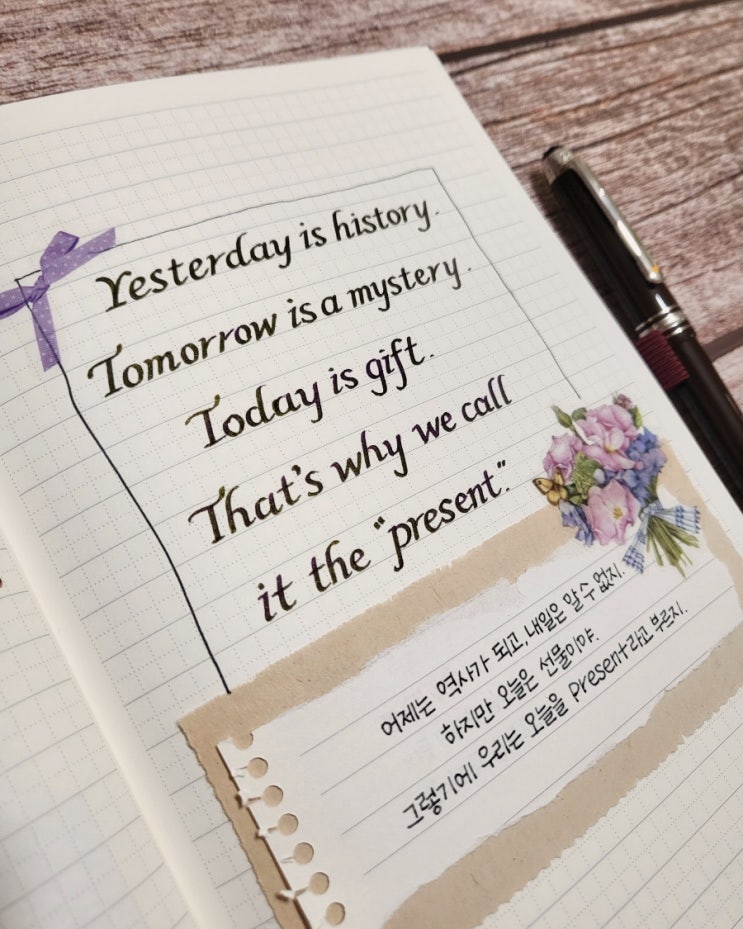 Yesterday is history.
Tomorrow is a mystery.
Today is gift.
That's why we call
it the "present".
어제는 역사가 되고, 내일은 알 수 없지.
하지만 오늘은 선물이야.
그렇기에 우리는 오늘을 present라고 부르지.